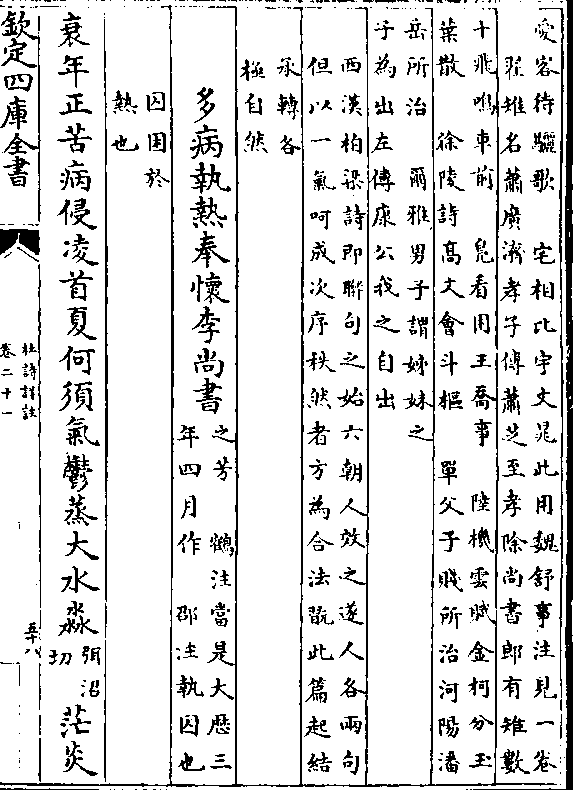 愛客待驪歌 宅相比宇文晁此用魏舒事注見一卷
翟雉名蕭廣濟孝子傳蕭芝至孝除尚書郎有雉數
十飛鳴車前 鳧看用王喬事 陸機雲賦金柯分玉
葉散 徐陵詩髙文會斗樞 單父子賤所治河陽潘
岳所治 爾雅男子謂姊妹之
子為出左傳康公我之自出
西漢柏梁詩即聯句之始六朝人效之遂人各兩句
但以一氣呵成次序秩然者方為合法翫此篇起結
承轉各
極自然
多病執熱奉懷李尚書
之芳 鶴注當是大厯三
年四月作 邵注執囚也
囚困於
熱也
衰年正苦病侵凌首夏何須氣鬱蒸大水淼
弭沼
切
茫炎
欽定四庫全書
杜詩詳註
卷二十一
五十八